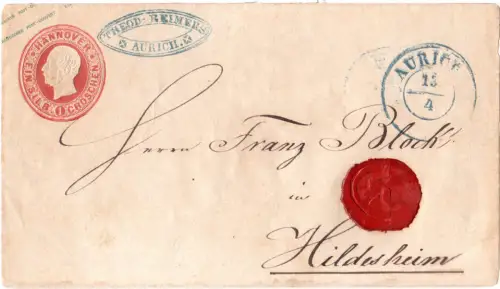 HANNOVER
EIN SILB. 1 GROSCHEN
THEOD. REIMERS
AURICH.
AURICH
15
4
Herrn Franz Block
in
Hildesheim